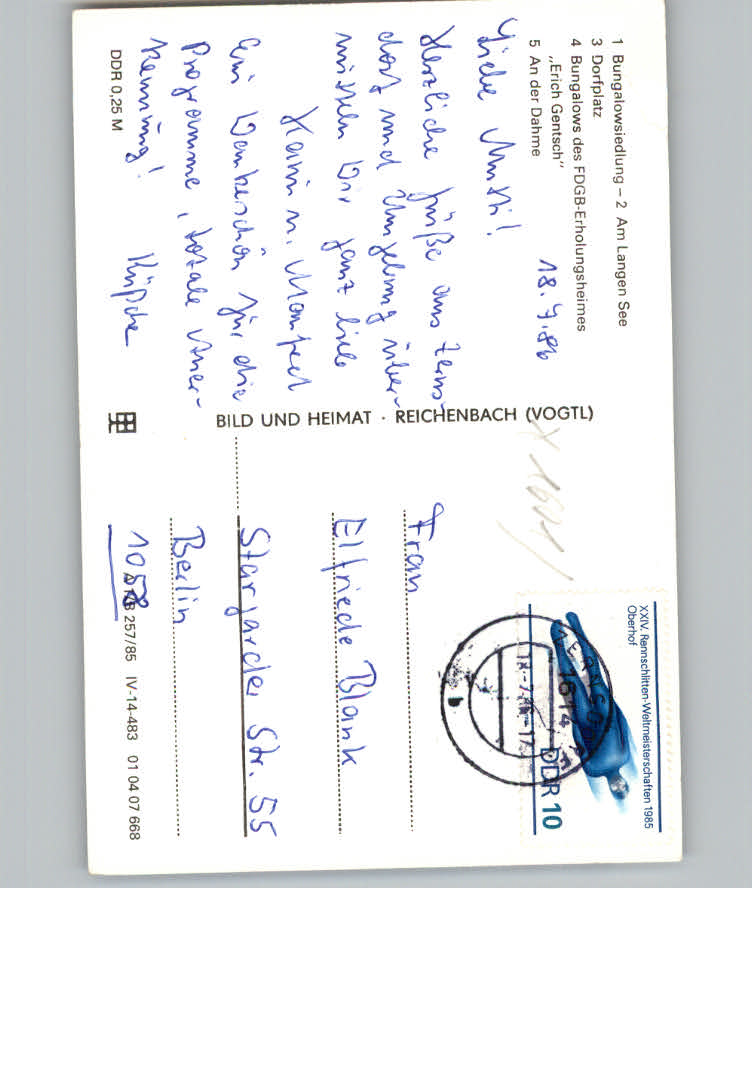 1 Bungalowsiedlung – 2 Am Langen See
3 Dorfplatz
4 Bungalows des FDGB-Erholungsheimes
„Erich Gentsch“
5 An der Dahme
18.7.86
Liebe Mutti!
Herzliche Grüße aus Zerns-
dorf und Umgebung über-
mitteln Dir ganz lieb
Karin u. Manfred
Ein Dankeschön für die
Programme, totale Aner-
kennung!
Küßche
DDR 0,25 M
BILD UND HEIMAT · REICHENBACH (VOGTL)
XXIV. Rennschlitten-Weltmeisterschaften 1985
Oberhof
DDR 10
1614
b
Frau
Elfriede Blank
Stargarder Str. 55
Berlin
1058
257/85 IV-14-483 01 04 07 668